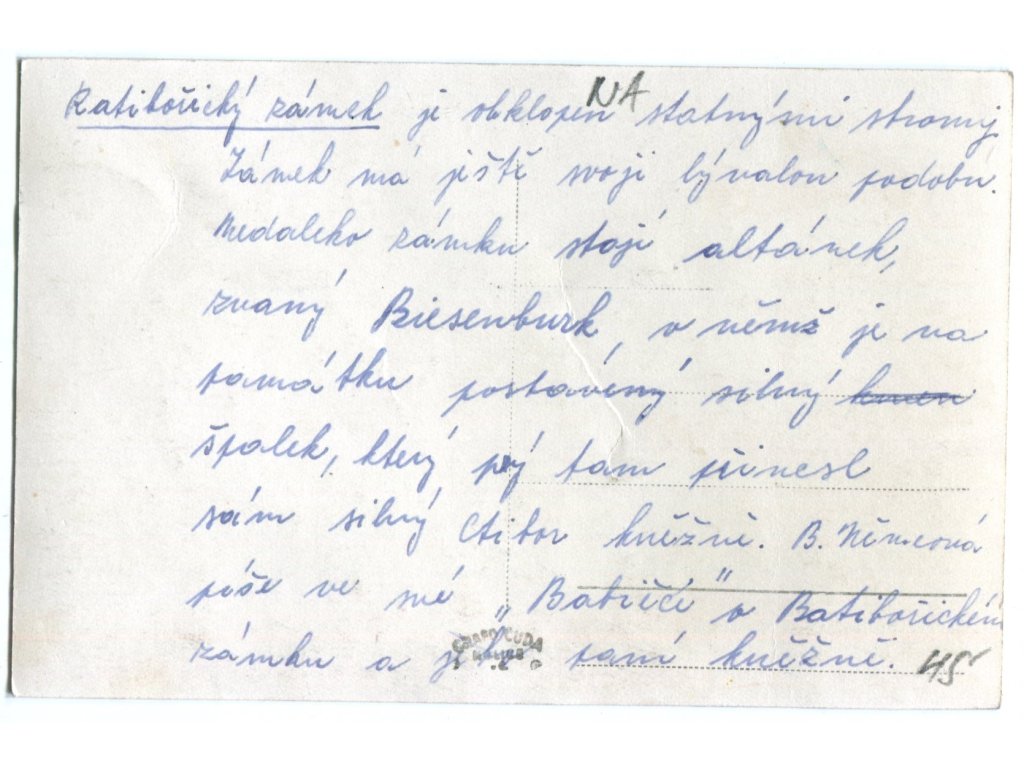 NA
Ratibořický zámek je obklopen statnými stromy.
Zámek má ještě svoji bývalou podobu.
Nedaleko zámku stojí altánek,
zvaný Riesenburk, v němž je na
památku postavený silný kmen
špalek, který prý tam přinesl
sám silný Ctibor kněžně. B. Němcová
píše ve své „Babičce" o Ratibořickém
zámku a její paní kněžně.
45